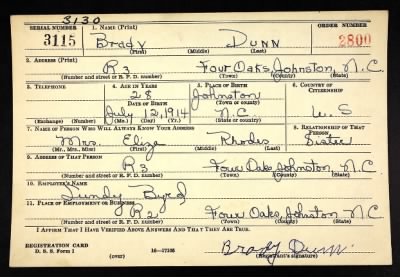 3130
SERIAL NUMBER 1. NAME (Print) ORDER NUMBER
3115 Brady Dunn 2800
(First) (Middle) (Last)
2. ADDRESS (Print)
R3 Four Oaks, Johnston, N.C.
(Number and street or R. F. D. number) (Town) (County) (State)
3. TELEPHONE 4. AGE IN YEARS 5. PLACE OF BIRTH 6. COUNTRY OF CITIZENSHIP
28 Johnston
DATE OF BIRTH (Town or county)
July 12, 1914 N.C. U.S
(Exchange) (Number) (Mo.) (Day) (Yr.) (State or country)
7. NAME OF PERSON WHO WILL ALWAYS KNOW YOUR ADDRESS 8. RELATIONSHIP OF THAT PERSON
Mrs. Eliza Rhodes Sister
(Mr., Mrs., Miss) (First) (Middle) (Last)
9. ADDRESS OF THAT PERSON
R3 Four Oaks, Johnston, N.C
(Number and street or R. F. D. number) (Town) (County) (State)
10. EMPLOYER'S NAME
Lundy Byrd
11. PLACE OF EMPLOYMENT OR BUSINESS
R2 Four Oaks, Johnston, N.C
(Number and street or R. F. D. number) (Town) (County) (State)
I AFFIRM THAT I HAVE VERIFIED ABOVE ANSWERS AND THAT THEY ARE TRUE.
REGISTRATION CARD
D. S. S. Form 1 16-17105 Brady Dunn
(Registrant's signature)